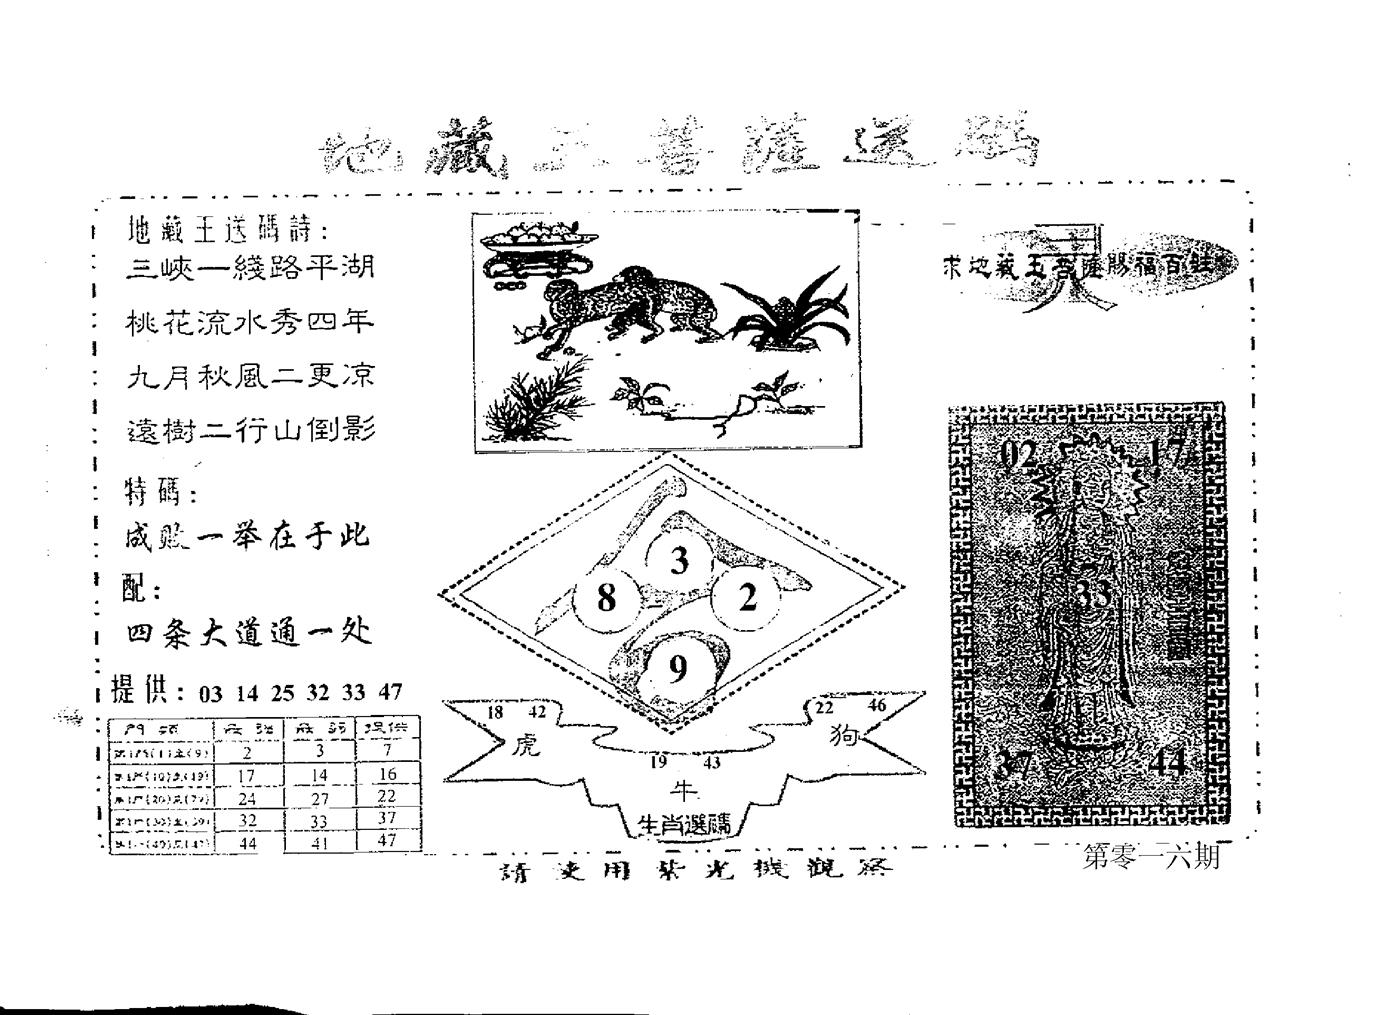 地藏王菩薩送碼
地藏王送碼詩：
三峽一綫路平湖
桃花流水秀四年
九月秋風二更凉
遠樹二行山倒影
特碼：
成败一举在于此
配：
四条大道通一处
提供：03 14 25 32 33 47
2 3 7
17 14 16
24 27 22
32 33 37
44 41 47
3
8 2
9
18 42
虎
19 43
牛
22 46
狗
生肖選碼
灵
求地藏王菩薩賜福百姓
02 17
33
37 44
請使用紫光機觀察
第零一六期